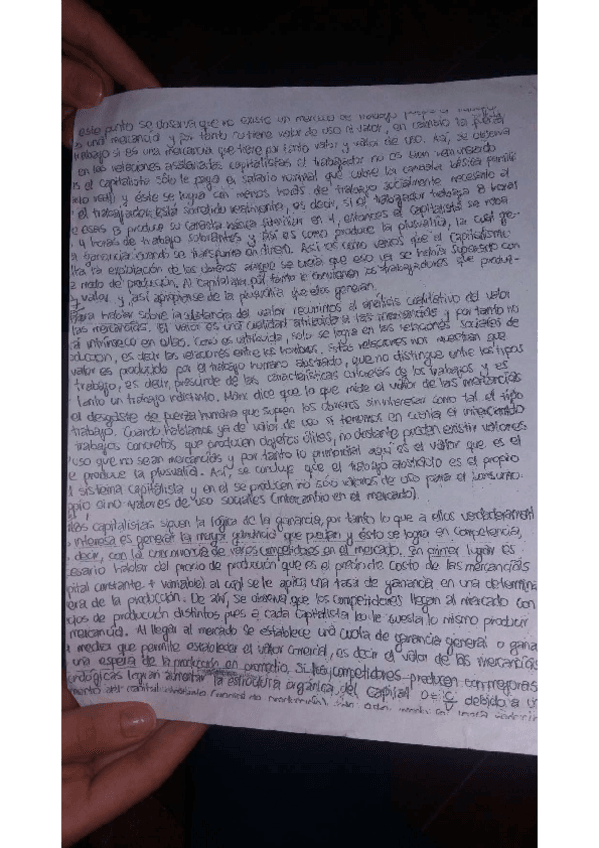 este punto se observa que no existe un mercado de trabajo
una mercancía y por tanto no tiene valor de uso ni valor, en cambio la fuerza
trabajo si es una mercancía que tiene por tanto valor y valor de uso. Así, se observa
en las relaciones asalariadas capitalistas el trabajador no es bien remunerado
el capitalista sólo le paga el salario normal que cubre la canasta básica
y éste se logra con menos horas de trabajo socialmente necesario
el trabajador está sometido realmente, es decir, si el trabajador trabaja 8 horas
produce su canasta básica en 4, entonces el capitalista se roba
4 horas de trabajo sobrantes y así es como produce la plusvalía, la cual
ganancia cuando se transforma en dinero. Así es como vemos que el capitalismo
la explotación de los obreros aunque se creía que eso ya se había superado con
modo de producción. Al capitalista por tanto le convienen los trabajadores que
valor y así apropiarse de la plusvalía que ellos generan.
Para hablar sobre la sustancia del valor recurrimos al análisis cualitativo del valor
las mercancías. El valor es una cualidad atribuida a las mercancías y por tanto no
intrínseco en ellas. Como es atribuida, solo se logra en las relaciones sociales de
es decir las relaciones entre los hombres. Estas relaciones nos muestran que
valor es producido por el trabajo humano abstracto, que no distingue entre los tipos
trabajo, es decir, prescinde de las características concretas de los trabajos y es
tanto un trabajo indistinto. Marx dice que lo que mide el valor de las mercancías
el desgaste de fuerza humana que sufren los obreros sin interesar como tal el tipo
trabajo. Cuando hablamos ya de valor de uso si tenemos en cuenta el intercambio
trabajos concretos que producen objetos útiles, no obstante pueden existir valores
uso que no sean mercancías y por tanto lo primordial aquí es el valor que es el
produce la plusvalía. Así, se concluye que el trabajo abstracto es el propio
sistema capitalista y en el se producen no solo valores de uso para el consumo
sino valores de uso sociales (intercambio en el mercado).
los capitalistas siguen la lógica de la ganancia, por tanto lo que a ellos verdaderamente
interesa es generar la mayor ganancia que puedan y ésto se logra en competencia,
decir, con la concurrencia de varios competidores en el mercado. En primer lugar es
hablar del precio de producción que es el precio de costo de las mercancías
constante + variable) al cual se le aplica una tasa de ganancia en una determinada
de la producción. De ahí, se observa que los competidores llegan al mercado con
de producción distintos pues a cada capitalista no le cuesta lo mismo producir
mercancía. Al llegar al mercado se establece una cuota de ganancia general o
media que permite establecer el valor comercial, es decir el valor de las mercancías
una esfera de la producción en promedio. Si los competidores producen con mejoras
logran aumentar la estructura orgánica del capital O=C/V debido a